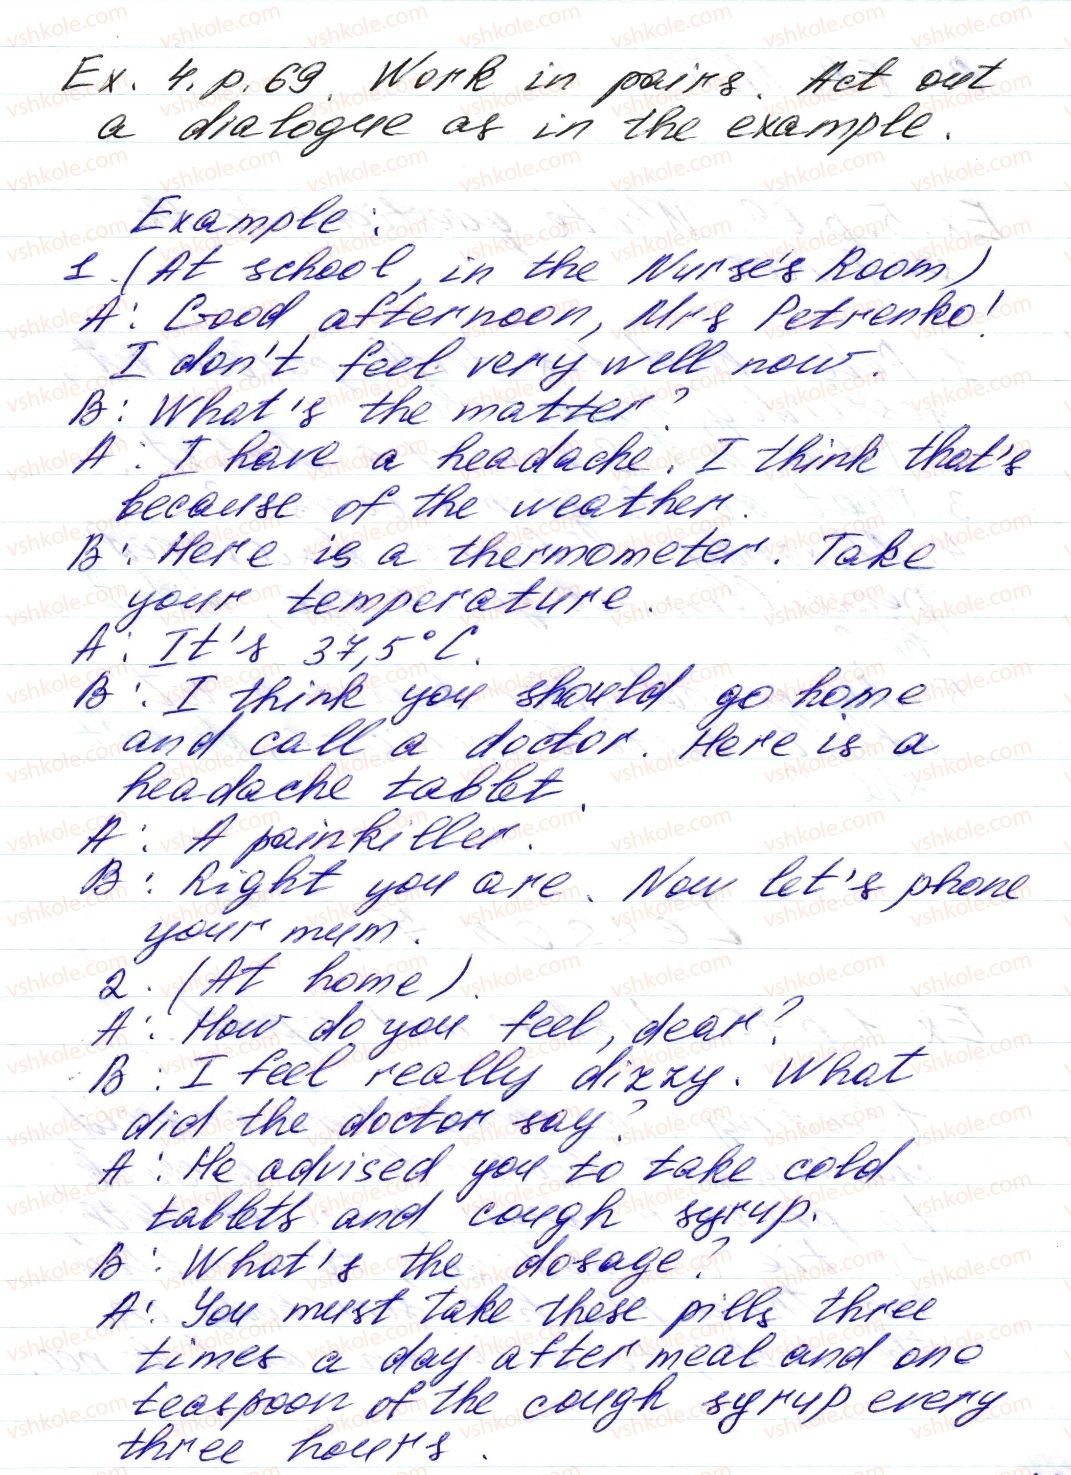 Ex. 4. p. 69. Work in pairs. Act out
a dialogue as in the example.
Example:
1. (At school, in the Nurse's Room)
A: Good afternoon, Mrs Petrenko!
I don't feel very well now.
B: What's the matter?
A: I have a headache. I think that's
because of the weather.
B: Here is a thermometer. Take
your temperature.
A: It's 37,5°C.
B: I think you should go home
and call a doctor. Here is a
headache tablet.
A: A painkiller.
B: Right you are. Now let's phone
your mum.
2. (At home).
A: How do you feel, dear?
B: I feel really dizzy. What
did the doctor say?
A: He advised you to take cold
tablets and cough syrup.
B: What's the dosage?
A: You must take these pills three
times a day after meal and one
teaspoon of the cough syrup every
three hours.